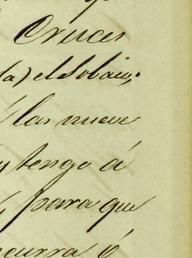 Cruces
(a) el Lobain,
las nueve
y tengo á
para que
ocurra á